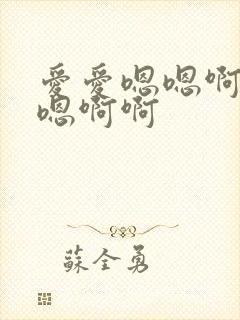 爱爱嗯嗯啊
嗯啊啊
蘇全勇